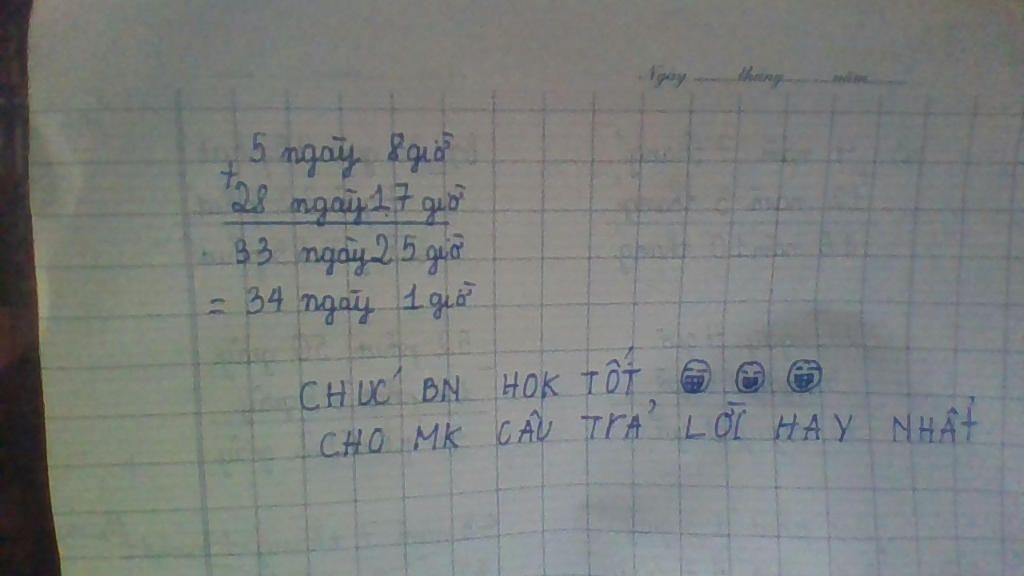 Ngày ........ tháng ........ năm ........
5 ngày 8 giờ
+
28 ngày 17 giờ
33 ngày 25 giờ
= 34 ngày 1 giờ
CHÚC BN HOK TỐT
CHO MK CÂU TRẢ LỜI HAY NHẤT